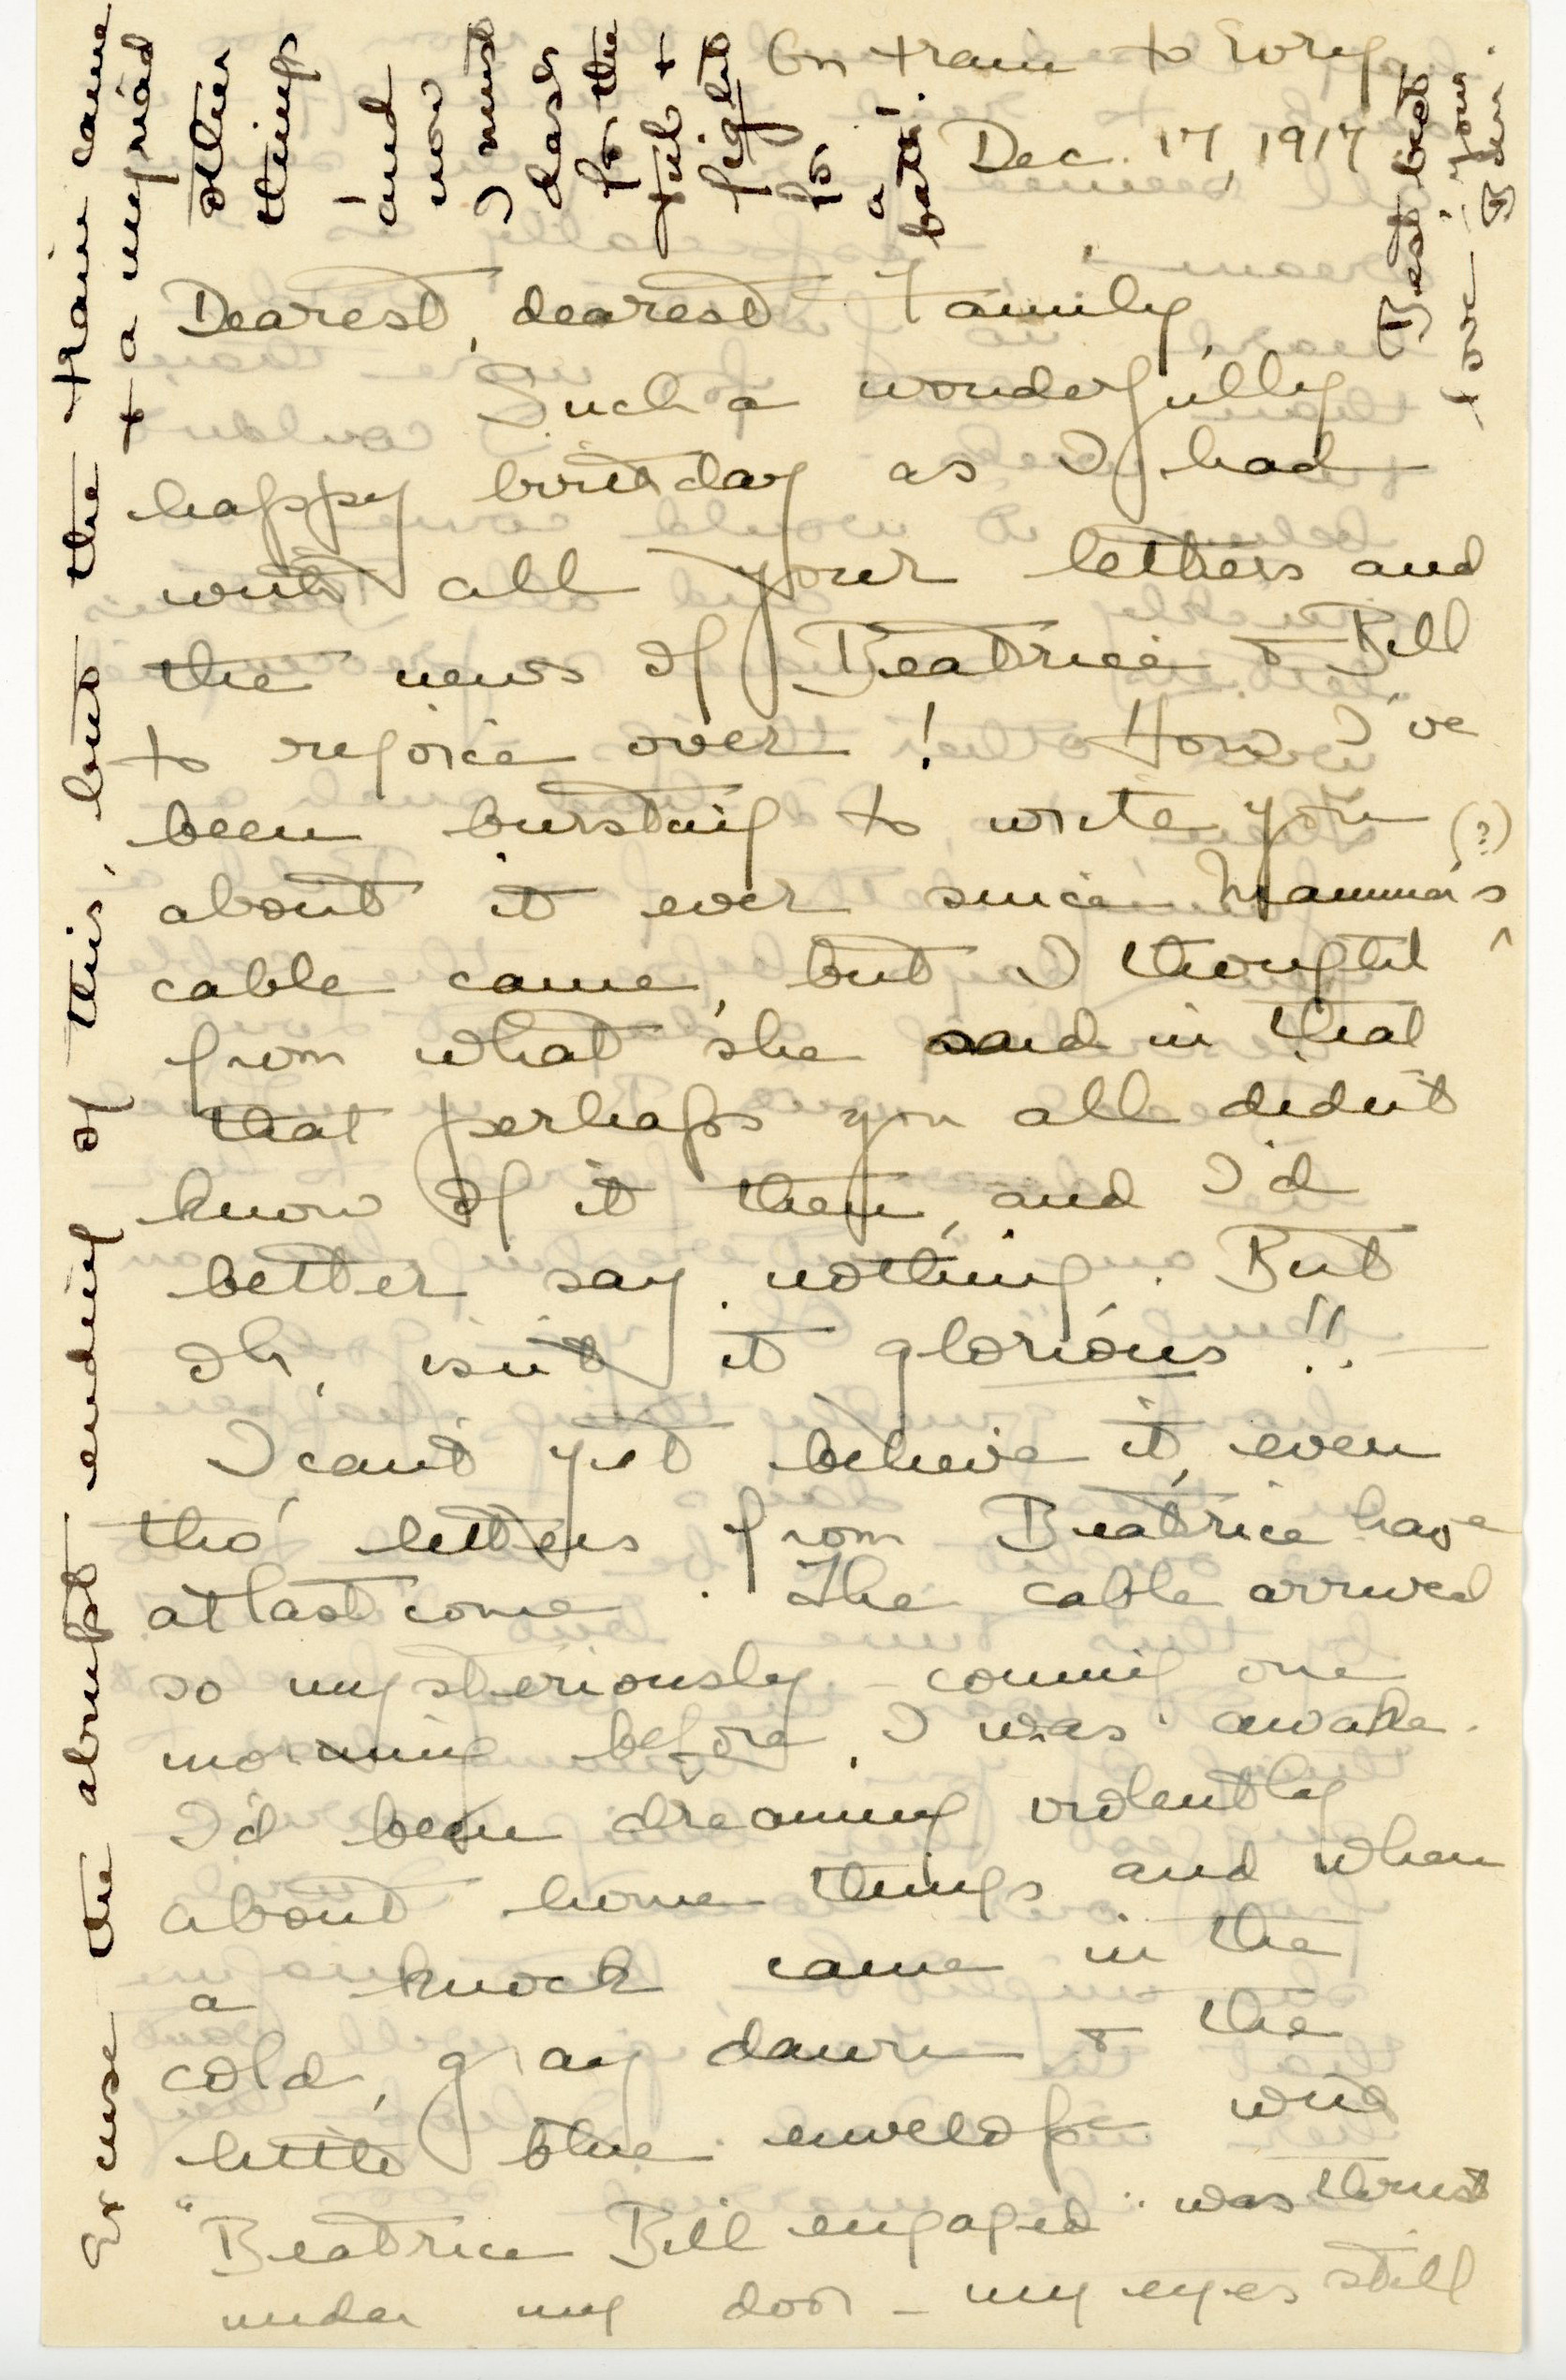 On train to Evry
Dec. 17, 1917
Dearest, dearest Family,
Such a wonderfully
happy birthday as I had
with all your letters and
the news of Beatrice & Bill
to rejoice over! How I've
been bursting to write you
about it ever since Mamma's (?)
cable came, but I thought
from what she said in that
that perhaps you all didn't
know of it then, and I'd
better say nothing. But
oh, isn't it glorious!!
I can't yet believe it, even
tho' letters from Beatrice have
at last come. The cable arrived
so mysteriously - coming one
morning before I was awake.
I'd been dreaming violently
about home things and when
a knock came in the
cold, gray dawn & the
little blue envelope with
"Beatrice Bill engaged" was thrust
under my door - my eyes still
Excuse the abrupt ending of this, but the train came
& a myriad
other
things
-
and
now
I must
dash
for the
tub &
fight
for
a
bath!
Best best
love - your